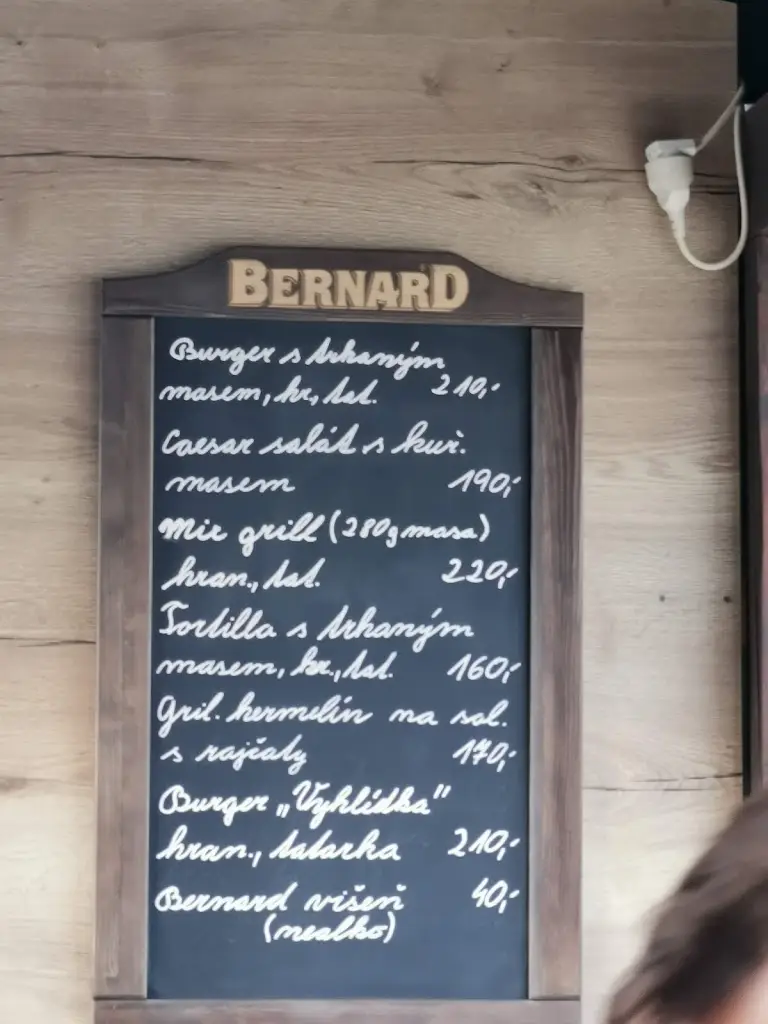 BERNARD
Burger s trhaným
masem, hr., tat. 210,-
Caesar salát s kuř.
masem 190,-
Mix grill (280g masa)
hran., tat. 220,-
Tortilla s trhaným
masem, hr., tat. 160,-
Gril. hermelín na sal.
s rajčaty 170,-
Burger „Vyhlídka"
hran., tatarka 210,-
Bernard višeň 40,-
(nealko)